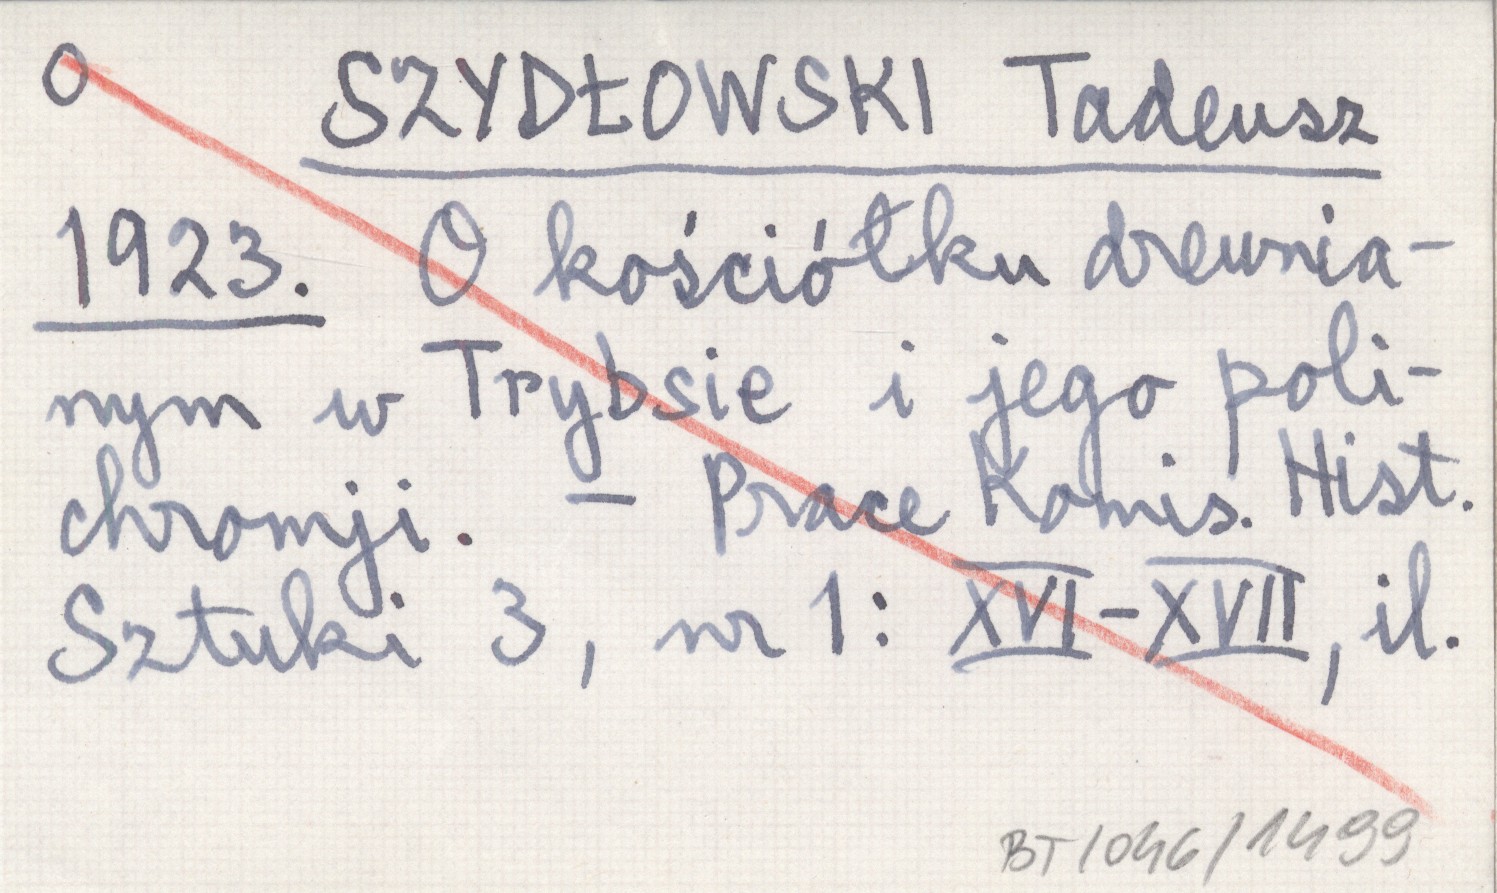 O SZYDŁOWSKI Tadeusz
1923. O kościółku drewnia-
nym w Trybsie i jego poli-
chromji. — Prace Komis. Hist.
Sztuki 3, nr 1: XVI-XVII, il.
BT/046/1499